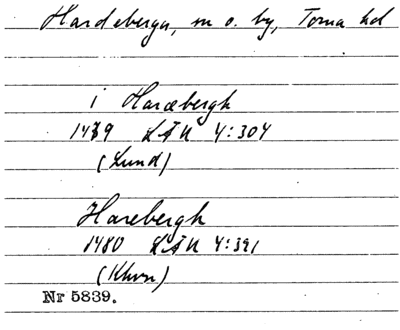 Hardeberga, sn o. by, Torna hd
i Haræbergh
1479 LÄU 4:304
(Lund)
Harebergh
1480 LÄU 4:391
(Khvn)
Nr 5839.